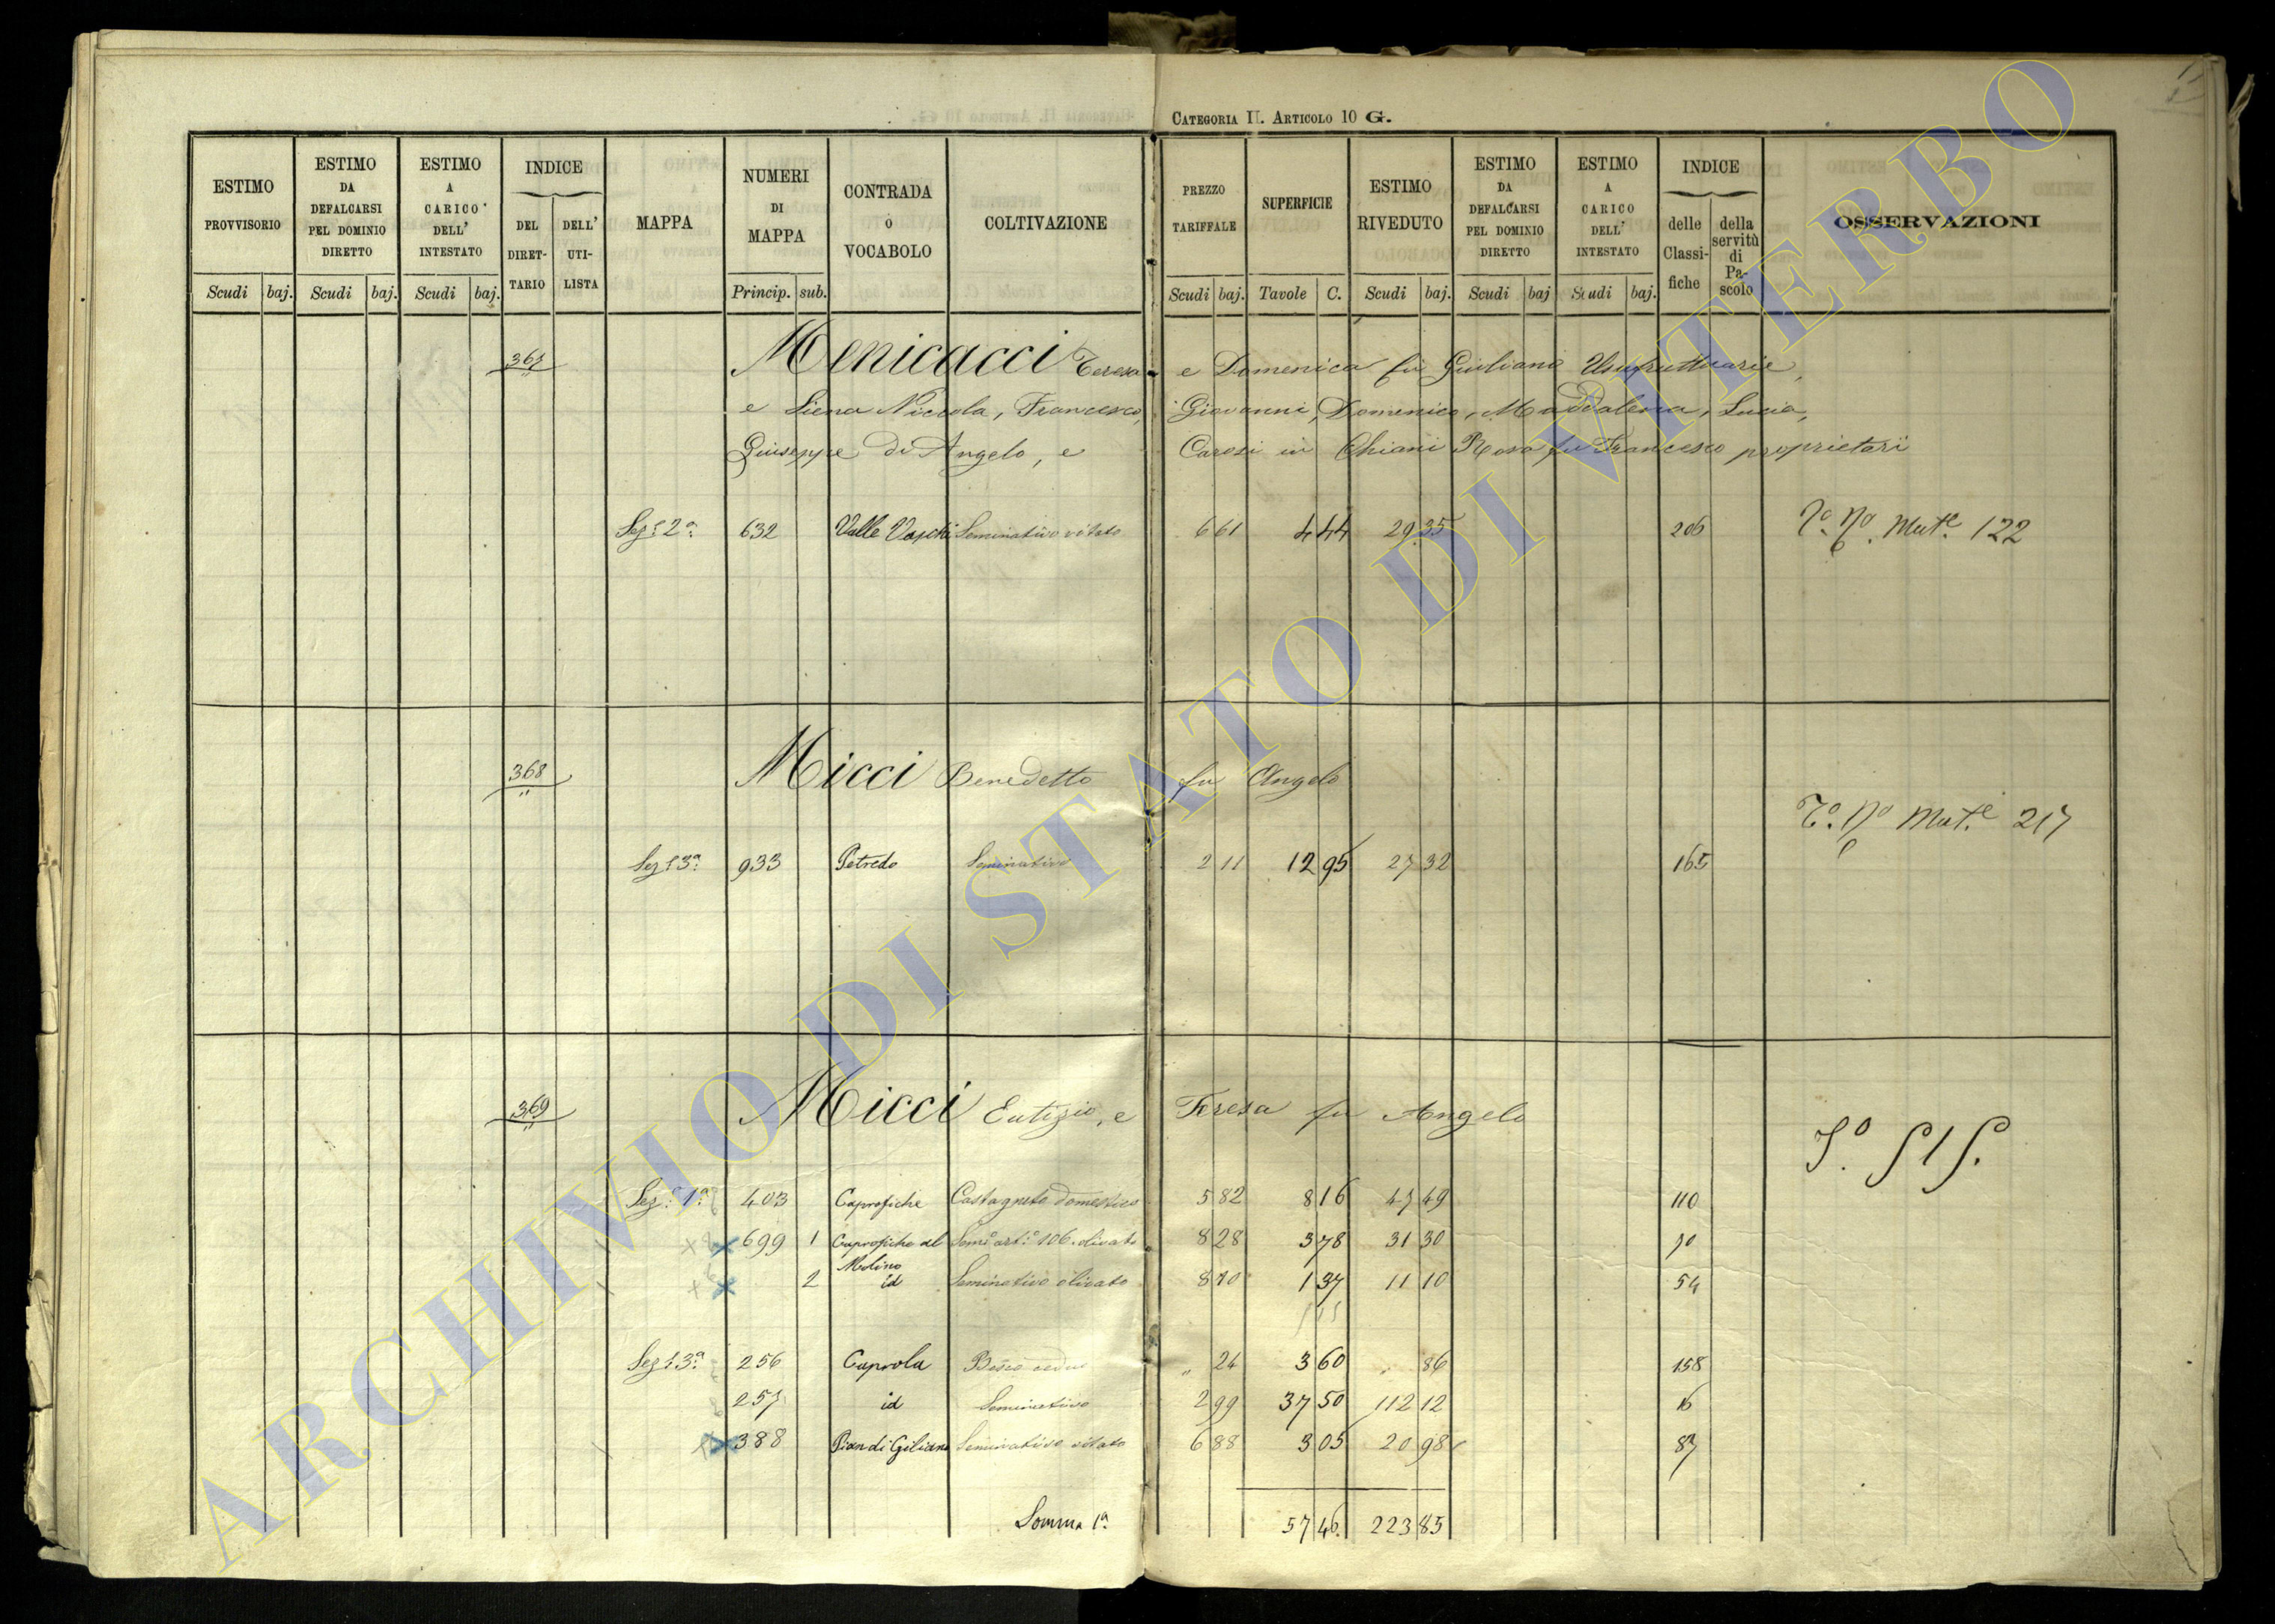 CATEGORIA II. ARTICOLO 10 G.
ESTIMO PROVVISORIO
ESTIMO DA DEFALCARSI PEL DOMINIO DIRETTO
ESTIMO A CARICO DELL' INTESTATO
INDICE
DEL DIRET-TARIO
DELL' UTI-LISTA
MAPPA
NUMERI DI MAPPA
CONTRADA O VOCABOLO
COLTIVAZIONE
PREZZO TARIFFALE
SUPERFICIE
ESTIMO RIVEDUTO
ESTIMO DA DEFALCARSI PEL DOMINIO DIRETTO
ESTIMO A CARICO DELL' INTESTATO
INDICE
delle Classi-fiche
della servitù di Pa-scolo
OSSERVAZIONI
Scudi baj. Scudi baj. Scudi baj. Princip. sub. Scudi baj. Tavole C. Scudi baj. Scudi baj Scudi baj.
367 Menicacci Teresa e Domenica fu Giuliano Usufruttuarie,
e Siena Niccola, Francesco, Giovanni, Domenico, Maddalena, Lucia,
Giuseppe di Angelo, e Carosi in Chiani Rosa fu Francesco proprietari
Sez. 2a. 632 Valle Vaschi Seminativo vitato 6 61 4 44 29 35 206 Mut.e 122
368 Micci Benedetto fu Angelo
Mut.e 217
Sez. 3a. 933 Petreto Seminativo 2 11 12 95 27 32 165
369 Micci Eutizio, e Teresa fu Angelo
Sez. 1a. 403 Caprofiche Castagneto domestico 5 82 8 16 47 49 110
699 1 Caprofiche al Molino Semo. arto. 106. olivato 8 28 3 78 31 30 70
2 id Seminativo olivato 8 10 1 37 11 10 54
Sez. 3a. 256 Caprola Bosco ceduo " 24 3 60 86 158
257 id Seminativo 2 99 37 50 112 12 16
388 Pian di Giliano Seminativo vitato 6 88 3 05 20 98 87
Somma 1a. 57 46. 223 85
ARCHIVIO DI STATO DI VITERBO